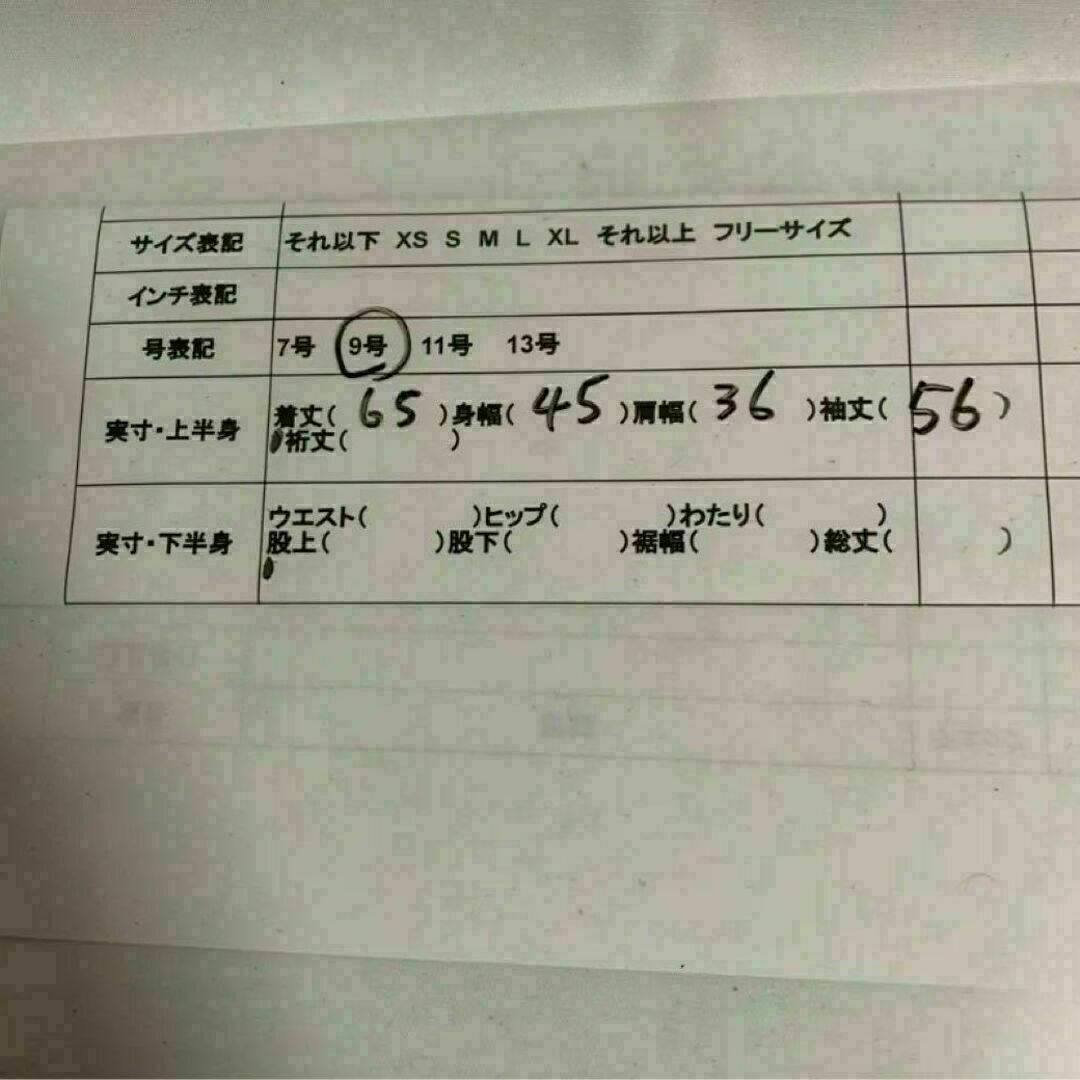 サイズ表記 それ以下 XS S M L XL それ以上 フリーサイズ
インチ表記
号表記 7号 9号 11号 13号
実寸・上半身 着丈( 65 )身幅( 45 )肩幅( 36 )袖丈( 56 )
裄丈( )
実寸・下半身 ウエスト( )ヒップ( )わたり( )
股上( )股下( )裾幅( )総丈( )